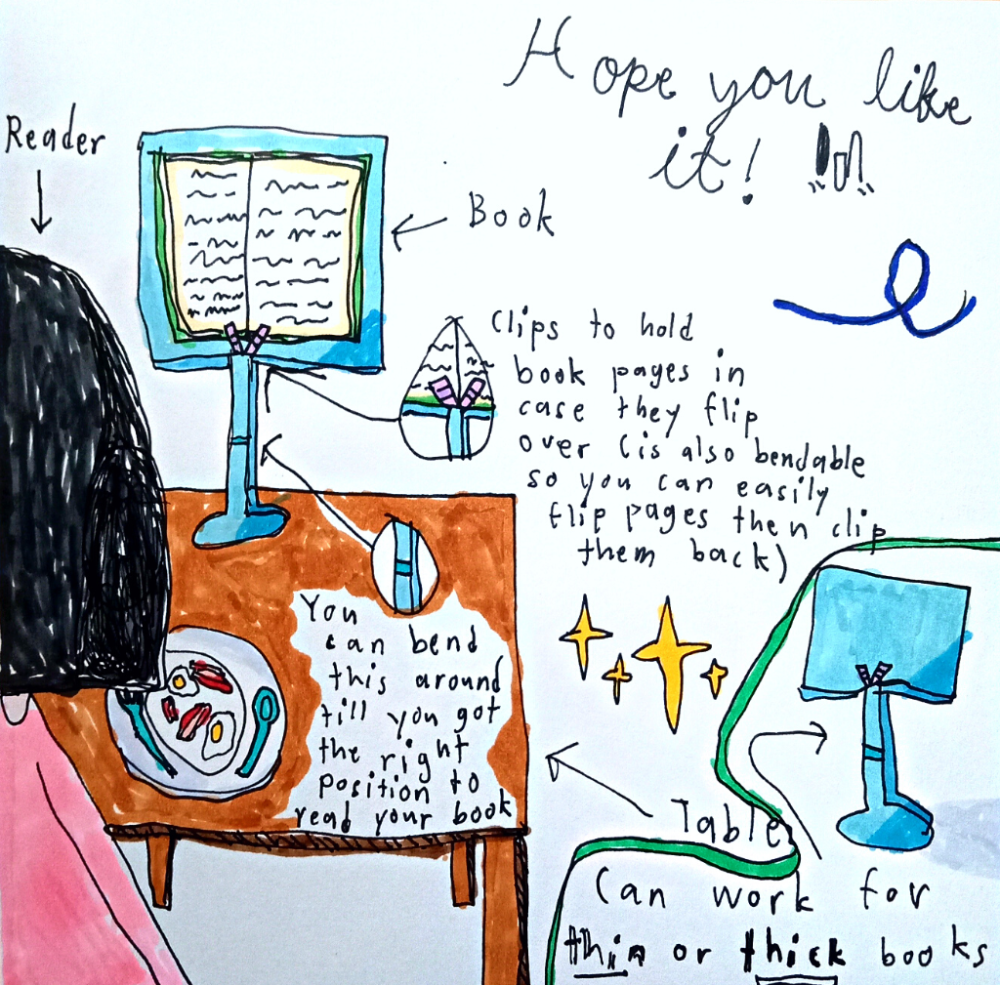 Hope you like
it! !!!
Reader
Book
Clips to hold
book pages in
case they flip
over (is also bendable
so you can easily
flip pages then clip
them back)
You
can bend
this around
till you got
the right
position to
read your book
Table
Can work for
thin or thick books